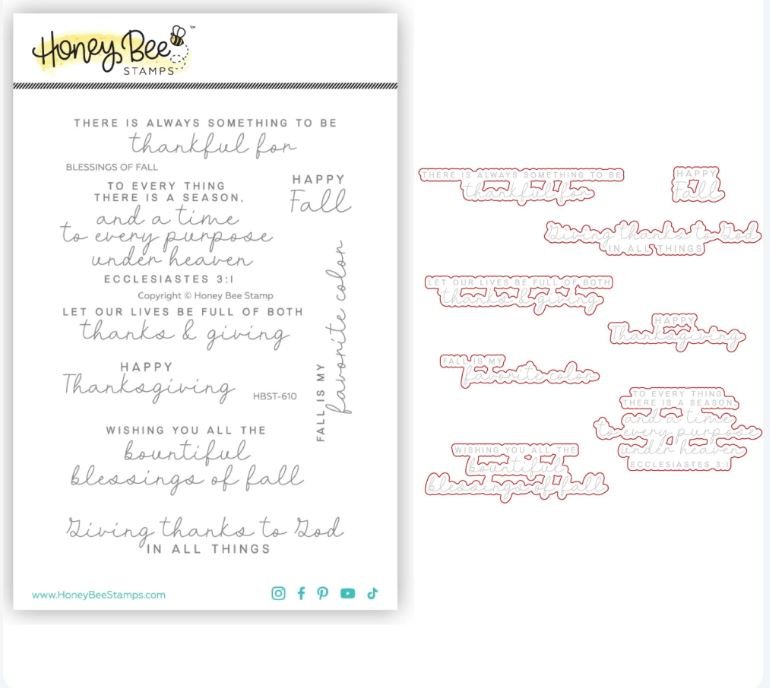 Honey Bee
STAMPS
™
THERE IS ALWAYS SOMETHING TO BE
thankful for
BLESSINGS OF FALL
TO EVERY THING
THERE IS A SEASON,
and a time
to every purpose
under heaven
ECCLESIASTES 3:1
HAPPY
Fall
Copyright © Honey Bee Stamp
LET OUR LIVES BE FULL OF BOTH
thanks & giving
FALL IS MY
favorite color
HAPPY
Thanksgiving
HBST-610
WISHING YOU ALL THE
bountiful
blessings of fall
Giving thanks to God
IN ALL THINGS
www.HoneyBeeStamps.com
THERE IS ALWAYS SOMETHING TO BE
thankful for
HAPPY
Fall
Giving thanks to God
IN ALL THINGS
LET OUR LIVES BE FULL OF BOTH
thanks & giving
HAPPY
Thanksgiving
FALL IS MY
favorite color
TO EVERY THING
THERE IS A SEASON,
and a time
to every purpose
under heaven
ECCLESIASTES 3:1
WISHING YOU ALL THE
bountiful
blessings of fall